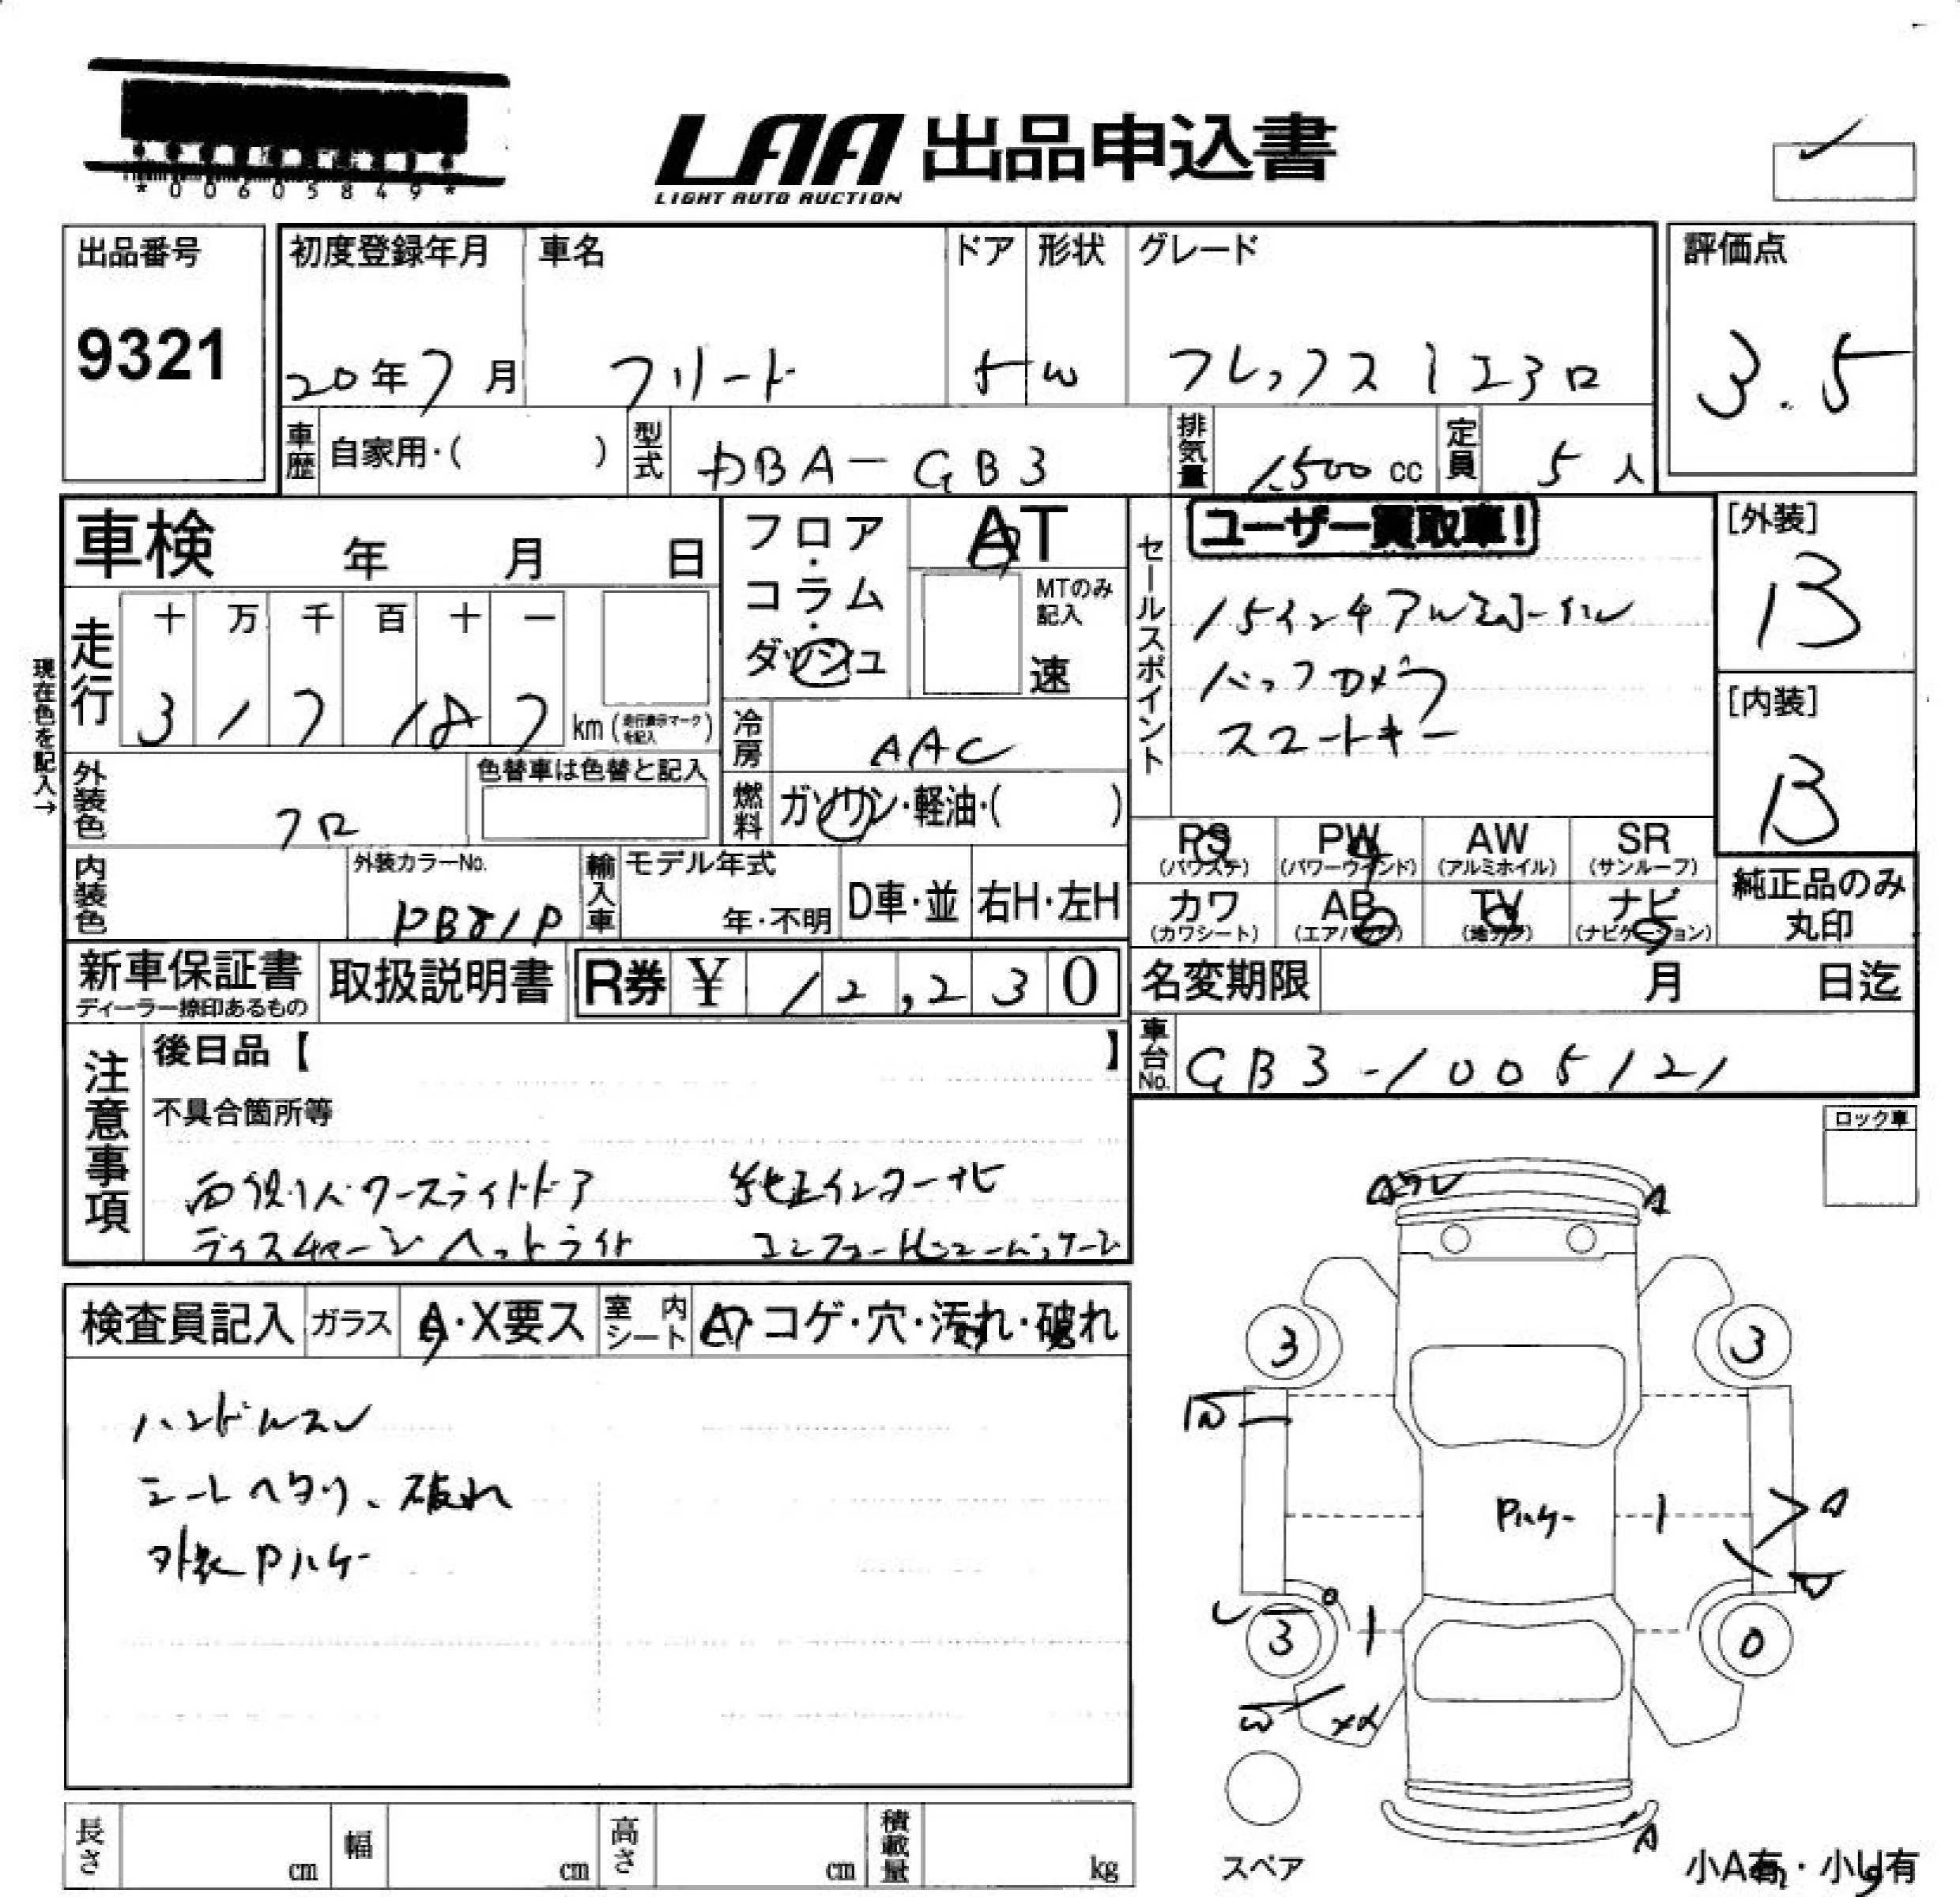 *00605849*
LAA 出品申込書
LIGHT AUTO AUCTION
出品番号 初度登録年月 車名 ドア 形状 グレード 評価点
9321 20年7月 フリード 5 W フレックス エアロ 3.5
車歴 自家用・( ) 型式 DBA-GB3 排気量 1,500 cc 定員 5 人
車検 年 月 日
フロア・コラム・ダッシュ
AT
MTのみ記入
速
セールスポイント
ユーザー買取車!
15インチアルミホイール
バックカメラ
スマートキー
[外装]
B
[内装]
B
現在色を記入→
走行 十 万 千 百 十 一
3 1 7 1 8 7 km (走行表示マークを記入)
冷房 AAC
外装色 クロ
色替車は色替と記入
燃料 ガソリン・軽油・( )
内装色
外装カラーNo.
PB81P
輸入車 モデル年式
年・不明
D車・並 右H・左H
PS PW AW SR
(パワステ) (パワーウインド) (アルミホイル) (サンルーフ)
カワ AB TV ナビ
(カワシート) (エアバック) (地デジ) (ナビゲーション)
純正品のみ
丸印
新車保証書
ディーラー捺印あるもの
取扱説明書
R券 ¥ 12,230
名変期限 月 日迄
車台No. GB3-1005121
注意事項
後日品【 】
不具合箇所等
両側パワースライドドア 純正インターナビ
ディスチャージヘッドライト コンフォートビューパッケージ
ロック車
検査員記入 ガラス A・X要ス 室内シート A・コゲ・穴・汚れ・破れ
ハンドルスレ
シートヘタリ、破れ
外装Pハゲ
Aワレ
A
3
3
W
Pハゲ
A
3
0
W
A
長さ cm 幅 cm 高さ cm 積載量 kg
スペア
小A有・小U有